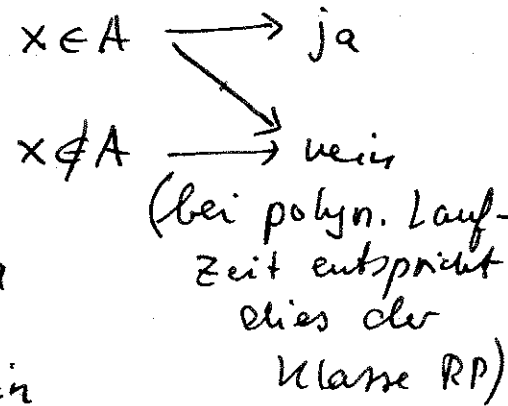 x ∈ A → ja
x ∉ A → nein
(bei polyn. Lauf-
zeit entspricht
dies der
Klasse RP)
in